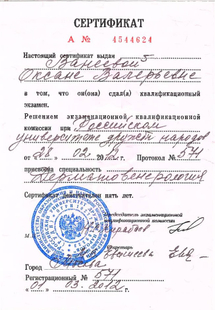 СЕРТИФИКАТ
А № 4544624
Настоящий сертификат выдан
Оксане Валерьевне
в том, что он(она) сдал(а) квалификационный
экзамен.
Решением экзаменационной квалификационной
комиссии при Российском
университете дружбы народов
от 28 02 Протокол № 571
присвоена специальность
Дерматовенерология
Сертификат действителен пять лет.
Председатель экзаменационной
квалификационной комиссии
Город Москва
Регистрационный № 571
01 03. 2012 г.